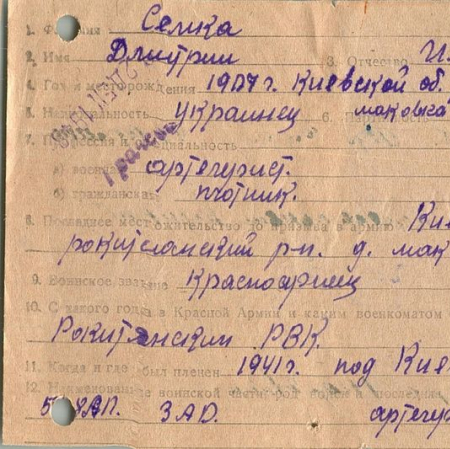 1. Фамилия Селика
2. Имя Дмитрий 3. Отчество И
4. Год и месторождения 1907 г. Киевской об.
5. Национальность украинец 6. маковка
7. Профессия и специальность
а) артелурист.
б) гражданская плотник.
8. Последнее местожительство до призыва в армию Ки
рокитлянский р-н. д. мак
9. Воинское звание Красноармеец
10. С какого года в Красной Армии и каким военкоматом
Рокитянским РВК.
11. Когда и где был пленен 1941 г. под Кие
12. Наименование воинской части, род войск и последняя
ЗАД. артелур